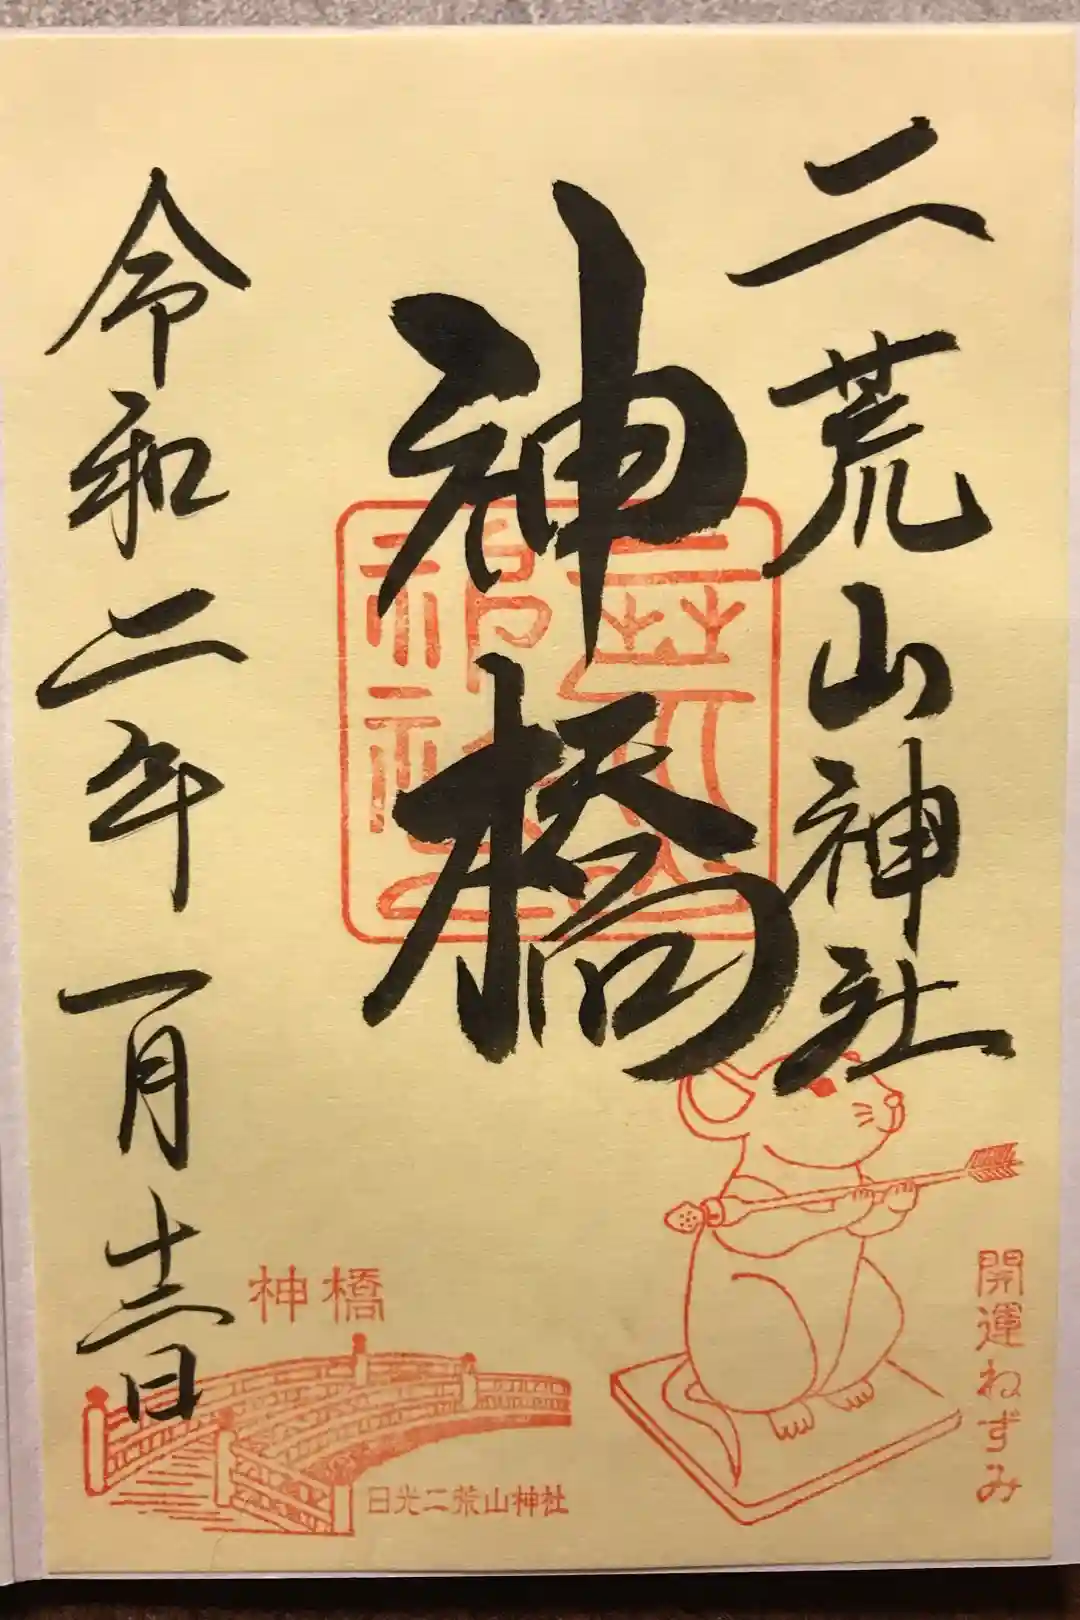 二荒山神社
神橋
令和二年一月十二日
二荒山神社
神橋
日光二荒山神社
開運ねずみ